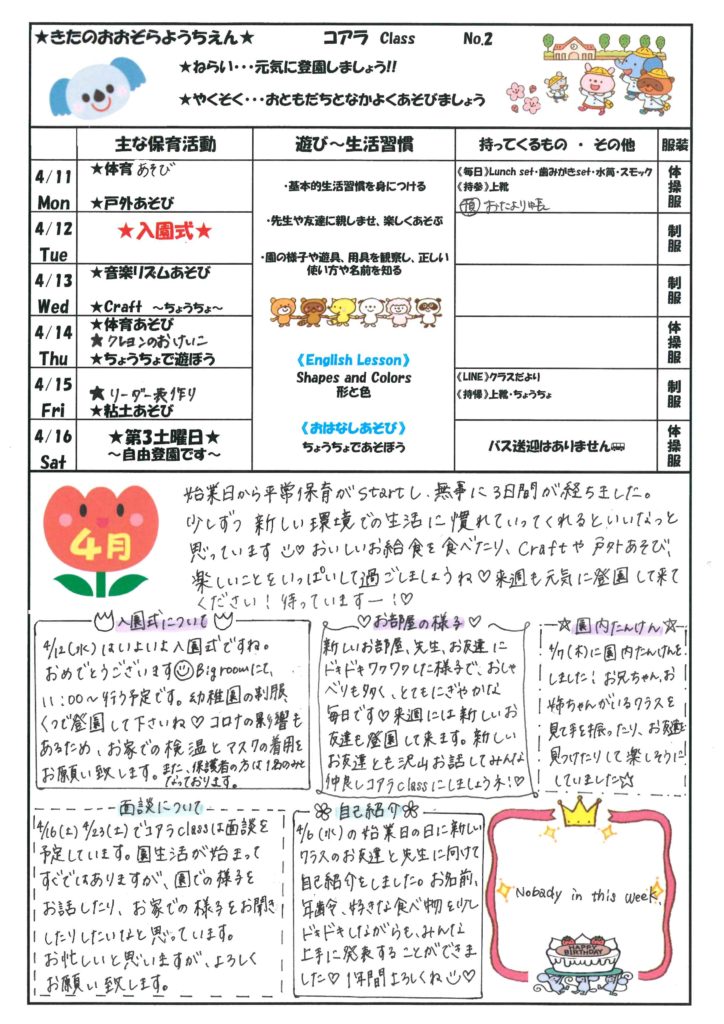 ★きたのおおぞらようちえん★ コアラ Class No.2
★ねらい・・・元気に登園しましょう!!
★やくそく・・・おともだちとなかよくあそびましょう
主な保育活動 遊び～生活習慣 持ってくるもの ・ その他 服装
4/11 Mon
★体育あそび
★戸外あそび
《毎日》Lunch set・歯みがきset・水筒・スモック
《持参》上靴
おたより帳
体操服
4/12 Tue
★入園式★
制服
4/13 Wed
★音楽リズムあそび
★Craft ～ちょうちょ～
制服
4/14 Thu
★体育あそび
★クレヨンのおけいこ
★ちょうちょで遊ぼう
体操服
4/15 Fri
★リーダー表作り
★粘土あそび
《LINE》クラスだより
《持帰》上靴・ちょうちょ
制服
4/16 Sat
★第3土曜日★
～自由登園です～
バス送迎はありません
体操服
・基本的生活習慣を身につける
・先生や友達に親しませ、楽しくあそぶ
・園の様子や遊具、用具を観察し、正しい
使い方や名前を知る
《English Lesson》
Shapes and Colors
形と色
《おはなしあそび》
ちょうちょであそぼう
4月
始業日から平常保育がstartし、無事に3日間が経ちました。
少しずつ 新しい環境での生活に慣れていってくれるといいなっと
思っています♡おいしいお給食を食べたり、Craftや戸外あそび、
楽しいことをいっぱいして過ごしましょうね♡来週も元気に登園して来て
ください!待っていますー!♡
入園式について
4/12(火)はいよいよ入園式ですね。
おめでとうございます Big roomにて、
11:00～行う予定です。幼稚園の制服、
くつで登園して下さいね♡コロナの影響も
あるため、お家での検温とマスクの着用を
お願い致します。また、保護者の方は1名のみと
なっております。
♡お部屋の様子♡
新しいお部屋、先生、お友達に
ドキドキワクワクした様子で、おしゃ
べりも多く、とてもにぎやかな
毎日です♡来週には新しいお
友達も登園して来ます。新しい
お友達とも沢山お話してみんな
仲良しコアラclassにしましょうネ!♡
☆園内たんけん☆
4/7(木)に園内たんけんを
しました!お兄ちゃん、お
姉ちゃんがいるクラスを
見て手を振ったり、お友達を
見つけたりして楽しそうに
していました☆
面談について
4/16(土)4/23(土)でコアラclassは面談を
予定しています。園生活が始まって
すぐではありますが、園での様子を
お話したり、お家での様子をお聞き
したりしたいなと思っています。
お忙しいと思いますが、よろしく
お願い致します。
自己紹介
4/6(水)の始業日の日に新しい
クラスのお友達と先生に向けて
自己紹介をしました。お名前、
年齢、好きな食べ物を少し
ドキドキしながらも、みんな
上手に発表することができま
した♡1年間よろしくね♡
Nobady in this week.
HAPPY
BIRTHDAY